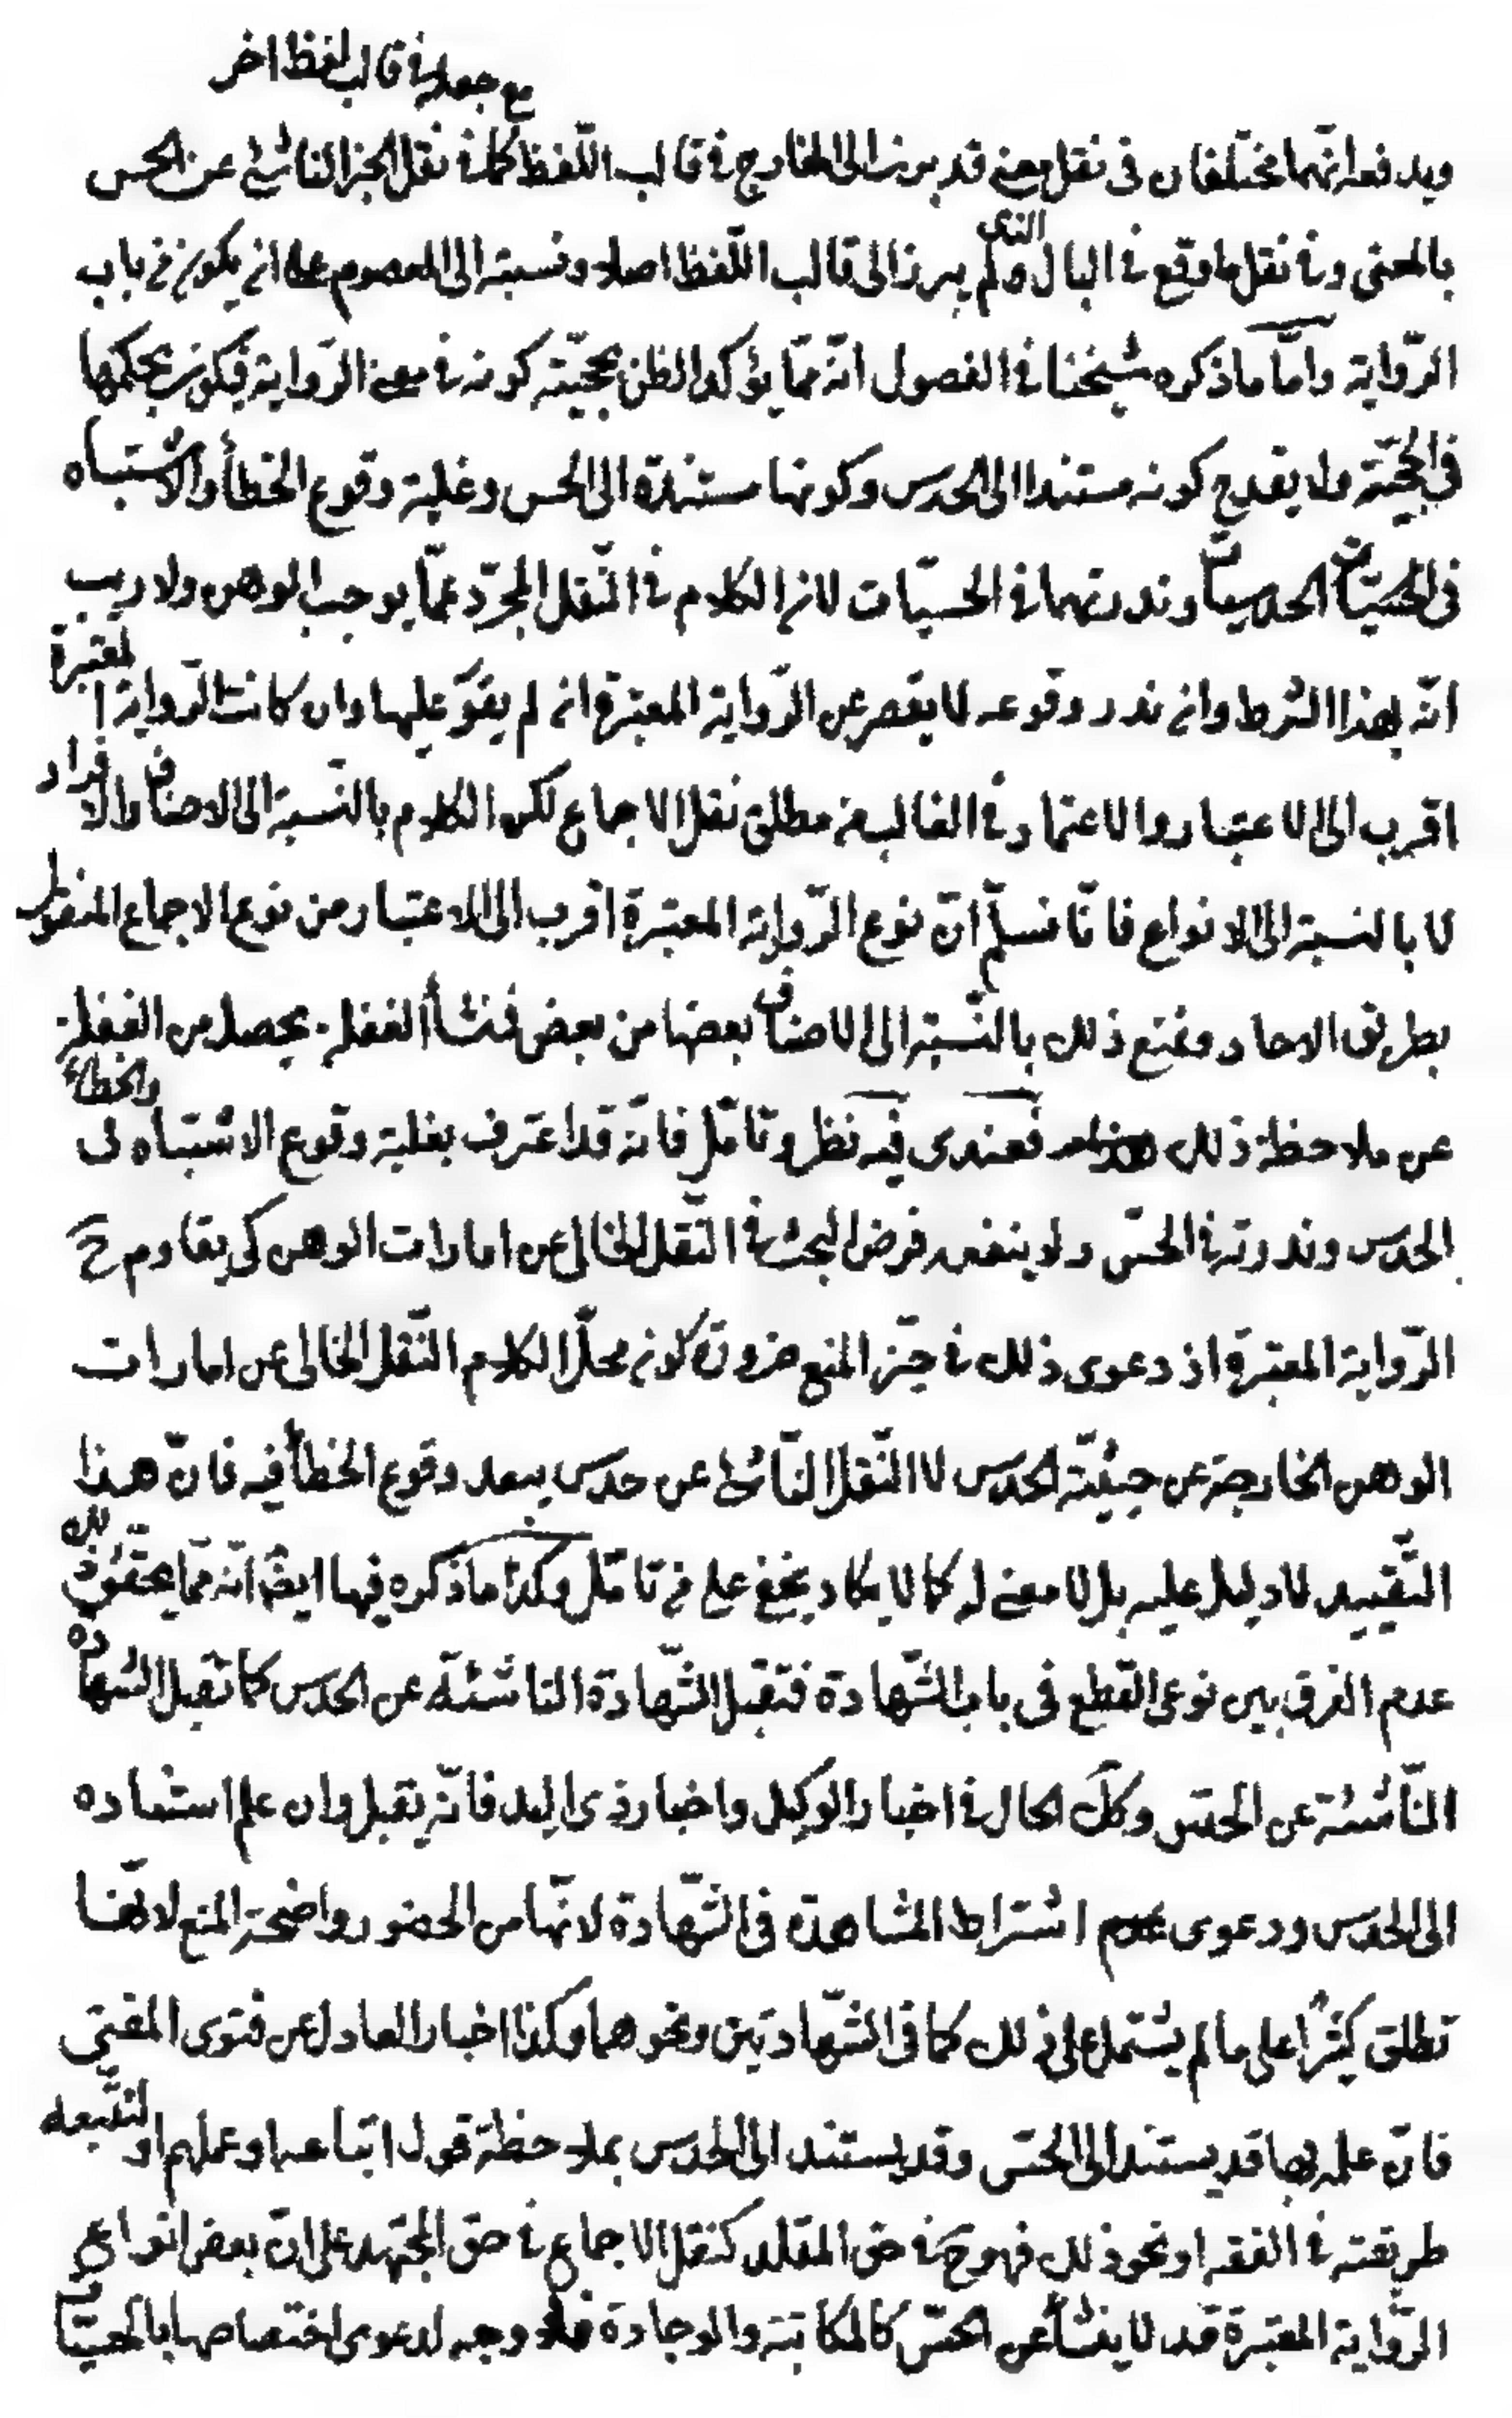 مع جعله في قالب لفظ اخر
ويدفعه انهما مختلفان فى نقل معنى قد برز الى الخارج في قالب اللّفظ كما في نقل الخبر الناشئ عن الحس
بالمعنى وفي نقل ما وقع في البال الذى لم يبرز الى قالب اللّفظ اصلا ونسبته الى المعصوم على ان يكون من باب
الرّواية وامّا ما ذكره شيخنا في الفصول انّه ممّا يؤكد الظن بحجيّته كونه في معنى الرّواية فيكون بحكمها
فى الحجيّة ولا يقدح كونه مستندا الى الحدس وكونها مستندة الى الحس وغلبة وقوع الخطأ والاشتباه
فى الحدسيات وندرتهما في الحسيّات لان الكلام في النّقل المجرّد عمّا يوجب الوهن ولا ريب
انّه بهذا الشرط وان ندر وقوعه لا يقصر عن الرّواية المعتبرة ان لم يقو عليها وان كانت الرّواية المعتبرة
اقرب الى الاعتبار والاعتماد في الغالب من مطلق نقل الاجماع لكن الكلام بالنّسبة الى الاصناف والافراد
لا بالنسبة الى الانواع فانّا نسلّم انّ نوع الرّواية المعتبرة اقرب الى الاعتبار من نوع الاجماع المنقول
بطريق الاحاد ونمنع ذلك بالنّسبة الى الاصناف بعضها من بعض فنشأ الغفلة يحصل من الغفلة
عن ملاحظة ذلك فعندى فيه نظر وتامّل فانّه قد اعترف بغلبة وقوع الاشتباه والخطاء فى
الحدس وندرته في الحسّ ولا ينفعه فرض البحث في النّقل الخالى عن امارات الوهن كى يقاوم ح
الرّواية المعتبرة اذ دعوى ذلك في حيّز المنع ضرورة كون محلّ الكلام النّقل الخالى عن امارات
الوهن الخارجة عن حيثيّة الحدس لا النّقل النّاشئ عن حدس يبعد وقوع الخطأ فيه فانّ هذا
التّقييد لا دليل عليه بل لا معنى له كما لا يكاد يخفى على من تامّل وكذا ما ذكره فيها ايضا انّه ممّا يحقّق ذلك
عدم الفرق بين نوعى القطع فى باب الشّهادة فتقبل الشّهادة الناشئة عن الحدس كما تقبل الشهادة
النّاشئة عن الحسّ وكك الحال في اخبار الوكيل واخبار ذى اليد فانّه يقبل وان علم استناده
الى الحدس ودعوى اشتراط المشاهدة فى الشّهادة لانّها من الحضور واضحة المنع لانّها
تطلق كثيرًا على ما لم يشتمل على ذلك كما فى الشّهادتين ونحوهما وكذا اخبار العادل عن فتوى المفتى
فانّ علمه بها قد يستند الى الحسّ وقد يستند الى الحدس بملاحظة قول اتباعه او عملهم او لتتبعه
طريقته في الفقه او نحو ذلك فهو ح في حق المقلد كنقل الاجماع في حق المجتهد على انّ بعض انواع
الرّواية المعتبرة قد لا ينشأ عن الحسّ كالمكاتبة والوجادة فلا وجه لدعوى اختصاصها بالحسيّات